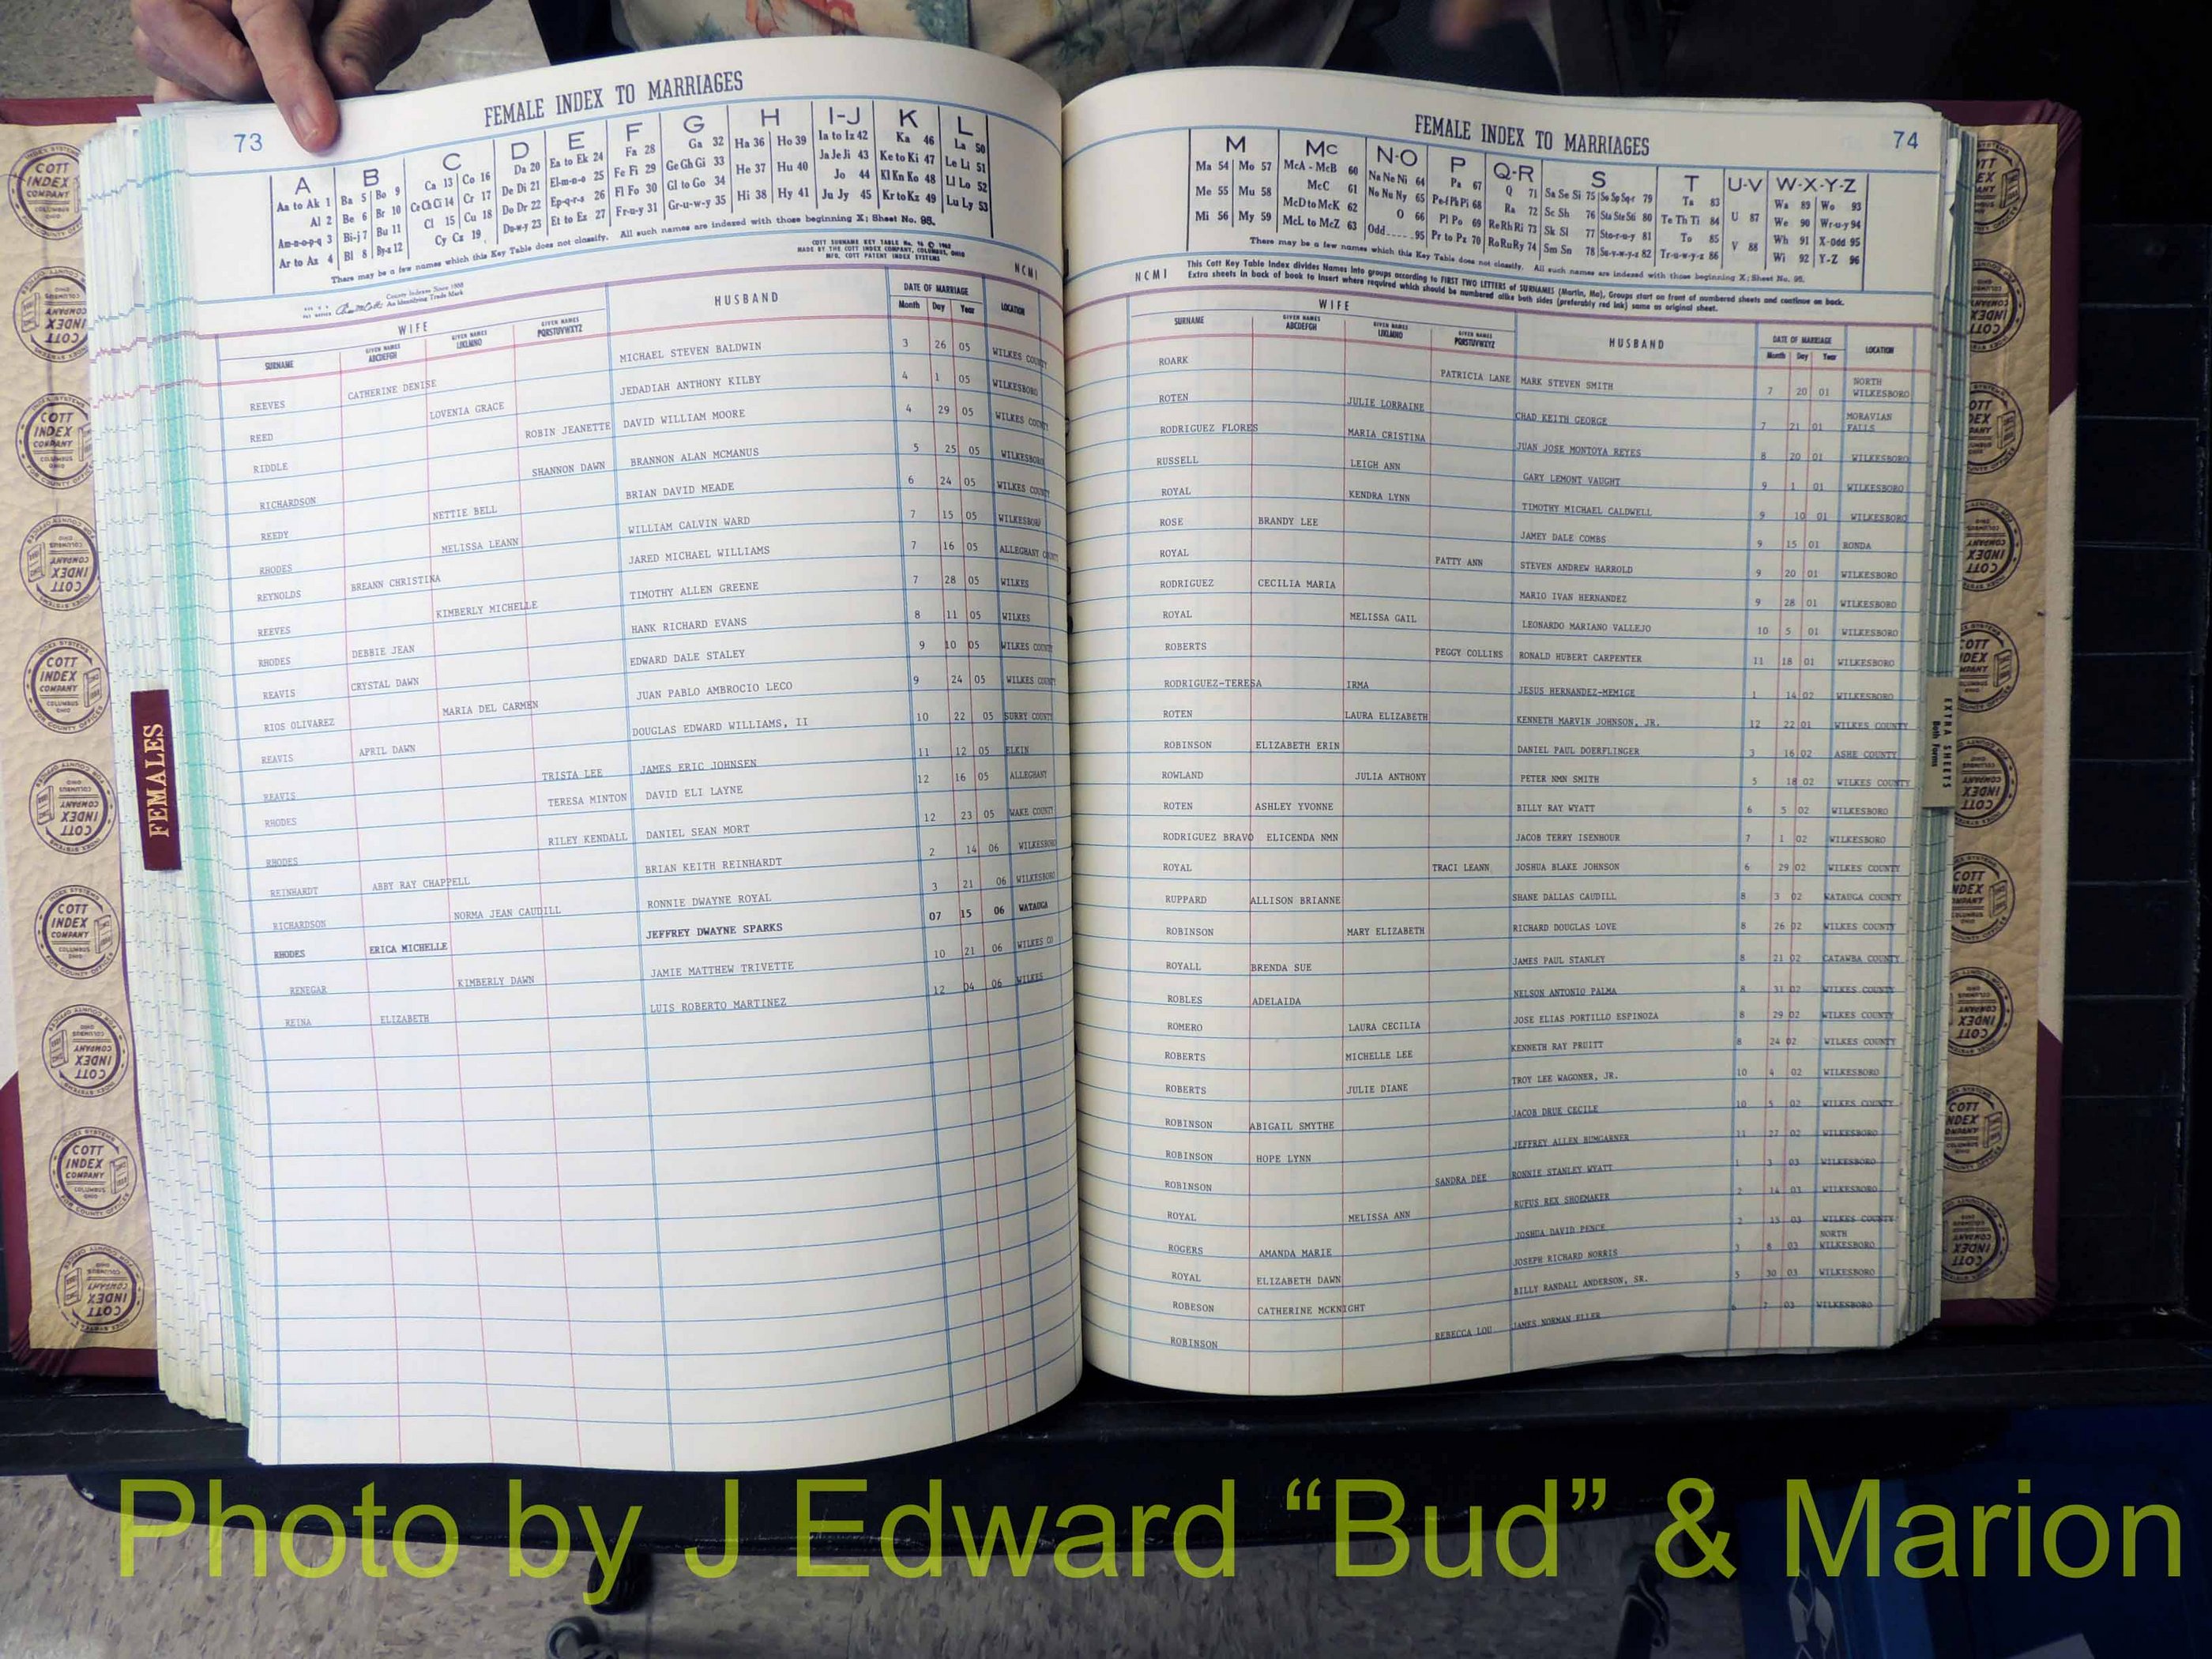 73
FEMALE INDEX TO MARRIAGES
A B C D E F G H I-J K L
Aa to Ak 1 Ba 5 Bo 9 Ca 13 Co 16 Da 20 Ea to Ek 24 Fa 28 Ga 32 Ha 36 Ho 39 Ia to Iz 42 Ka 46 La 50
Al 2 Be 6 Br 10 Ce Ch Ci 14 Cr 17 De Di 21 El-m-n-o 25 Fe Fi 29 Ge Gh Gi 33 He 37 Hu 40 Ja Je Ji 43 Ke to Ki 47 Le Li 51
Am-n-o-p-q 3 Bi-j 7 Bu 11 Cl 15 Cu 18 Do Dr 22 Ep-q-r-s 26 Fl Fo 30 Gl to Go 34 Hi 38 Hy 41 Jo 44 Kl Kn Ko 48 Ll Lo 52
Ar to Az 4 Bl 8 By-z 12 Cy Cz 19 Du-w-y 23 Et to Ez 27 Fr-u-y 31 Gr-u-w-y 35 Ju Jy 45 Kr to Kz 49 Lu Ly 53
There may be a few names which this Key Table does not classify. All such names are indexed with those beginning X; Sheet No. 95.
COTT SURNAME KEY TABLE
MADE BY THE COTT INDEX COMPANY, COLUMBUS, OHIO
MFG. COTT PATENT INDEX SYSTEMS
County Indexes Since 1888
An Identifying Trade Mark
NCMI
WIFE HUSBAND DATE OF MARRIAGE LOCATION
SURNAME GIVEN NAMES ABCDEFGH GIVEN NAMES IJKLMNO GIVEN NAMES PQRSTUVWXYZ Month Day Year
REEVES CATHERINE DENISE MICHAEL STEVEN BALDWIN 3 26 05 WILKES COUNTY
REED LOVENIA GRACE JEDADIAH ANTHONY KILBY 4 1 05 WILKESBORO
RIDDLE ROBIN JEANETTE DAVID WILLIAM MOORE 4 29 05 WILKES COUNTY
RICHARDSON SHANNON DAWN BRANNON ALAN MCMANUS 5 25 05 WILKESBORO
REEDY NETTIE BELL BRIAN DAVID MEADE 6 24 05 WILKES COUNTY
RHODES MELISSA LEANN WILLIAM CALVIN WARD 7 15 05 WILKESBORO
REYNOLDS BREANN CHRISTINA JARED MICHAEL WILLIAMS 7 16 05 ALLEGHANY COUNTY
REEVES KIMBERLY MICHELLE TIMOTHY ALLEN GREENE 7 28 05 WILKES
RHODES DEBBIE JEAN HANK RICHARD EVANS 8 11 05 WILKES
REAVIS CRYSTAL DAWN EDWARD DALE STALEY 9 10 05 WILKES COUNTY
RIOS OLIVAREZ MARIA DEL CARMEN JUAN PABLO AMBROCIO LECO 9 24 05 WILKES COUNTY
REAVIS APRIL DAWN DOUGLAS EDWARD WILLIAMS, II 10 22 05 SURRY COUNTY
REAVIS TRISTA LEE JAMES ERIC JOHNSEN 11 12 05 ELKIN
RHODES TERESA MINTON DAVID ELI LAYNE 12 16 05 ALLEGHANY
RHODES RILEY KENDALL DANIEL SEAN MORT 12 23 05 WAKE COUNTY
REINHARDT ABBY RAY CHAPPELL BRIAN KEITH REINHARDT 2 14 06 WILKESBORO
RICHARDSON NORMA JEAN CAUDILL RONNIE DWAYNE ROYAL 3 21 06 WILKESBORO
RHODES ERICA MICHELLE JEFFREY DWAYNE SPARKS 07 15 06 WATAUGA
RENEGAR KIMBERLY DAWN JAMIE MATTHEW TRIVETTE 10 21 06 WILKES CO
REINA ELIZABETH LUIS ROBERTO MARTINEZ 12 04 06 WILKES
FEMALES
74
FEMALE INDEX TO MARRIAGES
M Mc N-O P Q-R S T U-V W-X-Y-Z
Ma 54 Mo 57 McA - McB 60 Na Ne Ni 64 Pa 67 Q 71 Sa Se Si 75 So Sp Sq-r 79 Ta 83 U 87 Wa 89 Wo 93
Me 55 Mu 58 McC 61 No Nu Ny 65 Pe-f Ph Pi 68 Ra 72 Sc Sh 76 Sta Ste Sti 80 Te Th Ti 84 V 88 We 90 Wr-u-y 94
Mi 56 My 59 McD to McK 62 O 66 Pl Po 69 Re Rh Ri 73 Sk Sl 77 Sto-r-u-y 81 To 85 Wh 91 X-Odd 95
McL to McZ 63 Odd.....95 Pr to Pz 70 Ro Ru Ry 74 Sm Sn 78 Su-v-w-y-z 82 Tr-u-w-y-z 86 Wi 92 Y-Z 96
There may be a few names which this Key Table does not classify. All such names are indexed with those beginning X; Sheet No. 95.
NCMI
This Cott Key Table Index divides Names into groups according to FIRST TWO LETTERS of SURNAMES (Martin, Ma), Groups start on front of numbered sheets and continue on back.
Extra sheets in back of book to insert where required which should be numbered alike both sides (preferably red ink) same as original sheet.
WIFE HUSBAND DATE OF MARRIAGE LOCATION
SURNAME GIVEN NAMES ABCDEFGH GIVEN NAMES IJKLMNO GIVEN NAMES PQRSTUVWXYZ Month Day Year
ROARK PATRICIA LANE MARK STEVEN SMITH 7 20 01 NORTH WILKESBORO
ROTEN JULIE LORRAINE CHAD KEITH GEORGE 7 21 01 MORAVIAN FALLS
RODRIGUEZ FLORES MARIA CRISTINA JUAN JOSE MONTOYA REYES 8 20 01 WILKESBORO
RUSSELL LEIGH ANN GARY LEMONT VAUGHT 9 1 01 WILKESBORO
ROYAL KENDRA LYNN TIMOTHY MICHAEL CALDWELL 9 10 01 WILKESBORO
ROSE BRANDY LEE JAMEY DALE COMBS 9 15 01 RONDA
ROYAL PATTY ANN STEVEN ANDREW HARROLD 9 20 01 WILKESBORO
RODRIGUEZ CECILIA MARIA MARIO IVAN HERNANDEZ 9 28 01 WILKESBORO
ROYAL MELISSA GAIL LEONARDO MARIANO VALLEJO 10 5 01 WILKESBORO
ROBERTS PEGGY COLLINS RONALD HUBERT CARPENTER 11 18 01 WILKESBORO
RODRIGUEZ-TERESA IRMA JESUS HERNANDEZ-MEMIGE 1 14 02 WILKESBORO
ROTEN LAURA ELIZABETH KENNETH MARVIN JOHNSON, JR. 12 22 01 WILKES COUNTY
ROBINSON ELIZABETH ERIN DANIEL PAUL DOERFLINGER 3 16 02 ASHE COUNTY
ROWLAND JULIA ANTHONY PETER NMN SMITH 5 18 02 WILKES COUNTY
ROTEN ASHLEY YVONNE BILLY RAY WYATT 6 5 02 WILKESBORO
RODRIGUEZ BRAVO ELICENDA NMN JACOB TERRY ISENHOUR 7 1 02 WILKESBORO
ROYAL TRACI LEANN JOSHUA BLAKE JOHNSON 6 29 02 WILKES COUNTY
RUPPARD ALLISON BRIANNE SHANE DALLAS CAUDILL 8 3 02 WATAUGA COUNTY
ROBINSON MARY ELIZABETH RICHARD DOUGLAS LOVE 8 26 02 WILKES COUNTY
ROYALL BRENDA SUE JAMES PAUL STANLEY 8 21 02 CATAWBA COUNTY
ROBLES ADELAIDA NELSON ANTONIO PALMA 8 31 02 WILKES COUNTY
ROMERO LAURA CECILIA JOSE ELIAS PORTILLO ESPINOZA 8 29 02 WILKES COUNTY
ROBERTS MICHELLE LEE KENNETH RAY PRUITT 8 24 02 WILKES COUNTY
ROBERTS JULIE DIANE TROY LEE WAGONER, JR. 10 4 02 WILKESBORO
ROBINSON ABIGAIL SMYTHE JACOB DRUE CECILE 10 5 02 WILKES COUNTY
ROBINSON HOPE LYNN JEFFREY ALLEN BUMGARNER 11 27 02 WILKESBORO
ROBINSON SANDRA DEE RONNIE STANLEY WYATT 1 3 03 WILKESBORO
ROYAL MELISSA ANN RUFUS REX SHOEMAKER 2 14 03 WILKESBORO
ROGERS AMANDA MARIE JOSHUA DAVID PENCE 2 15 03 WILKES COUNTY
ROYAL ELIZABETH DAWN JOSEPH RICHARD NORRIS 3 8 03 NORTH WILKESBORO
ROBESON CATHERINE MCKNIGHT BILLY RANDALL ANDERSON, SR. 5 30 03 WILKESBORO
ROBINSON REBECCA LOU JAMES NORMAN ELLER 6 7 03 WILKESBORO
EXTRA SHEETS
Both Forms
COTT INDEX COMPANY COLUMBUS OHIO
INDEX SYSTEMS FOR COUNTY OFFICES
Photo by J Edward “Bud” & Marion